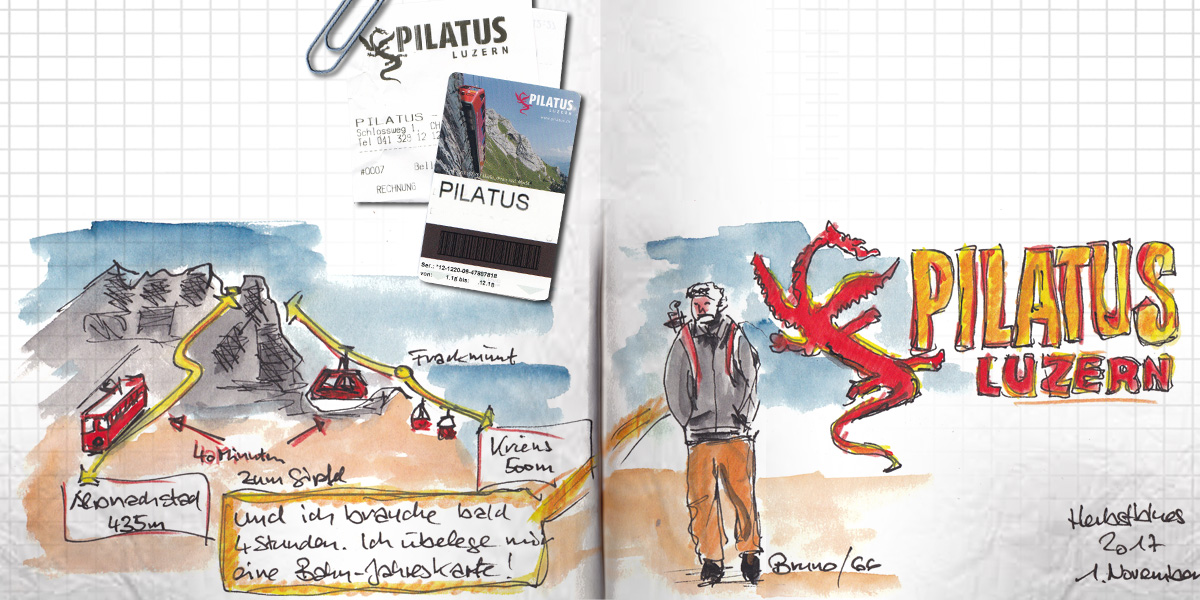 PILATUS
LUZERN
PILATUS -
Schlossweg 1, CH
Tel 041 328 12 12
#0007 Bell
RECHNUNG
PILATUS
LUZERN
PILATUS
Ser.: *12-1220-06-47897818
von: 1.18 bis: .12.18
Fräckmünt
Kriens
500m
40 Minuten
zum Gipfel
Alpnachstad
435m
und ich brauche bald
4 Stunden. Ich übelege mir
eine Bahn-Jahreskarte!
PILATUS
LUZERN
Bruno/GG
Herbstblues
2017
1. November